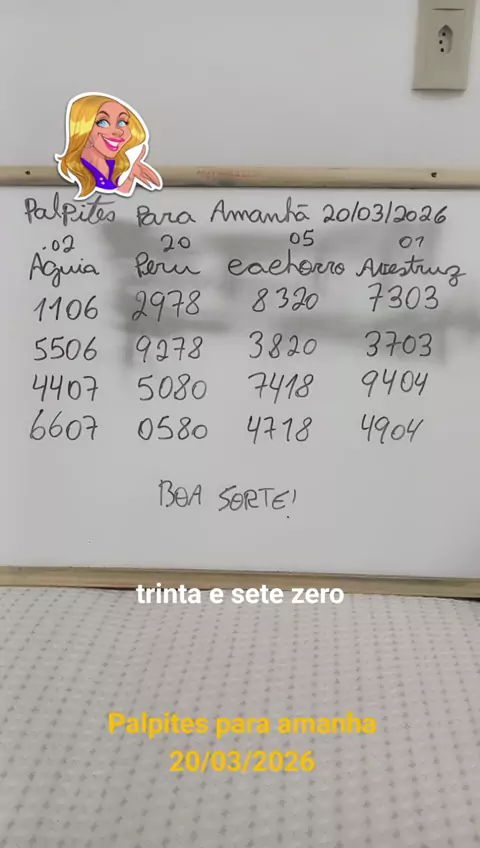 Palpites Para Amanhã 20/03/2026
.02 20 05 01
Aguia Peru cachorro Avestruz
1106 2978 8320 7303
5506 9278 3820 3703
4407 5080 7418 9404
6607 0580 4718 4904
BOA SORTE!
trinta e sete zero
Palpites para amanha
20/03/2026